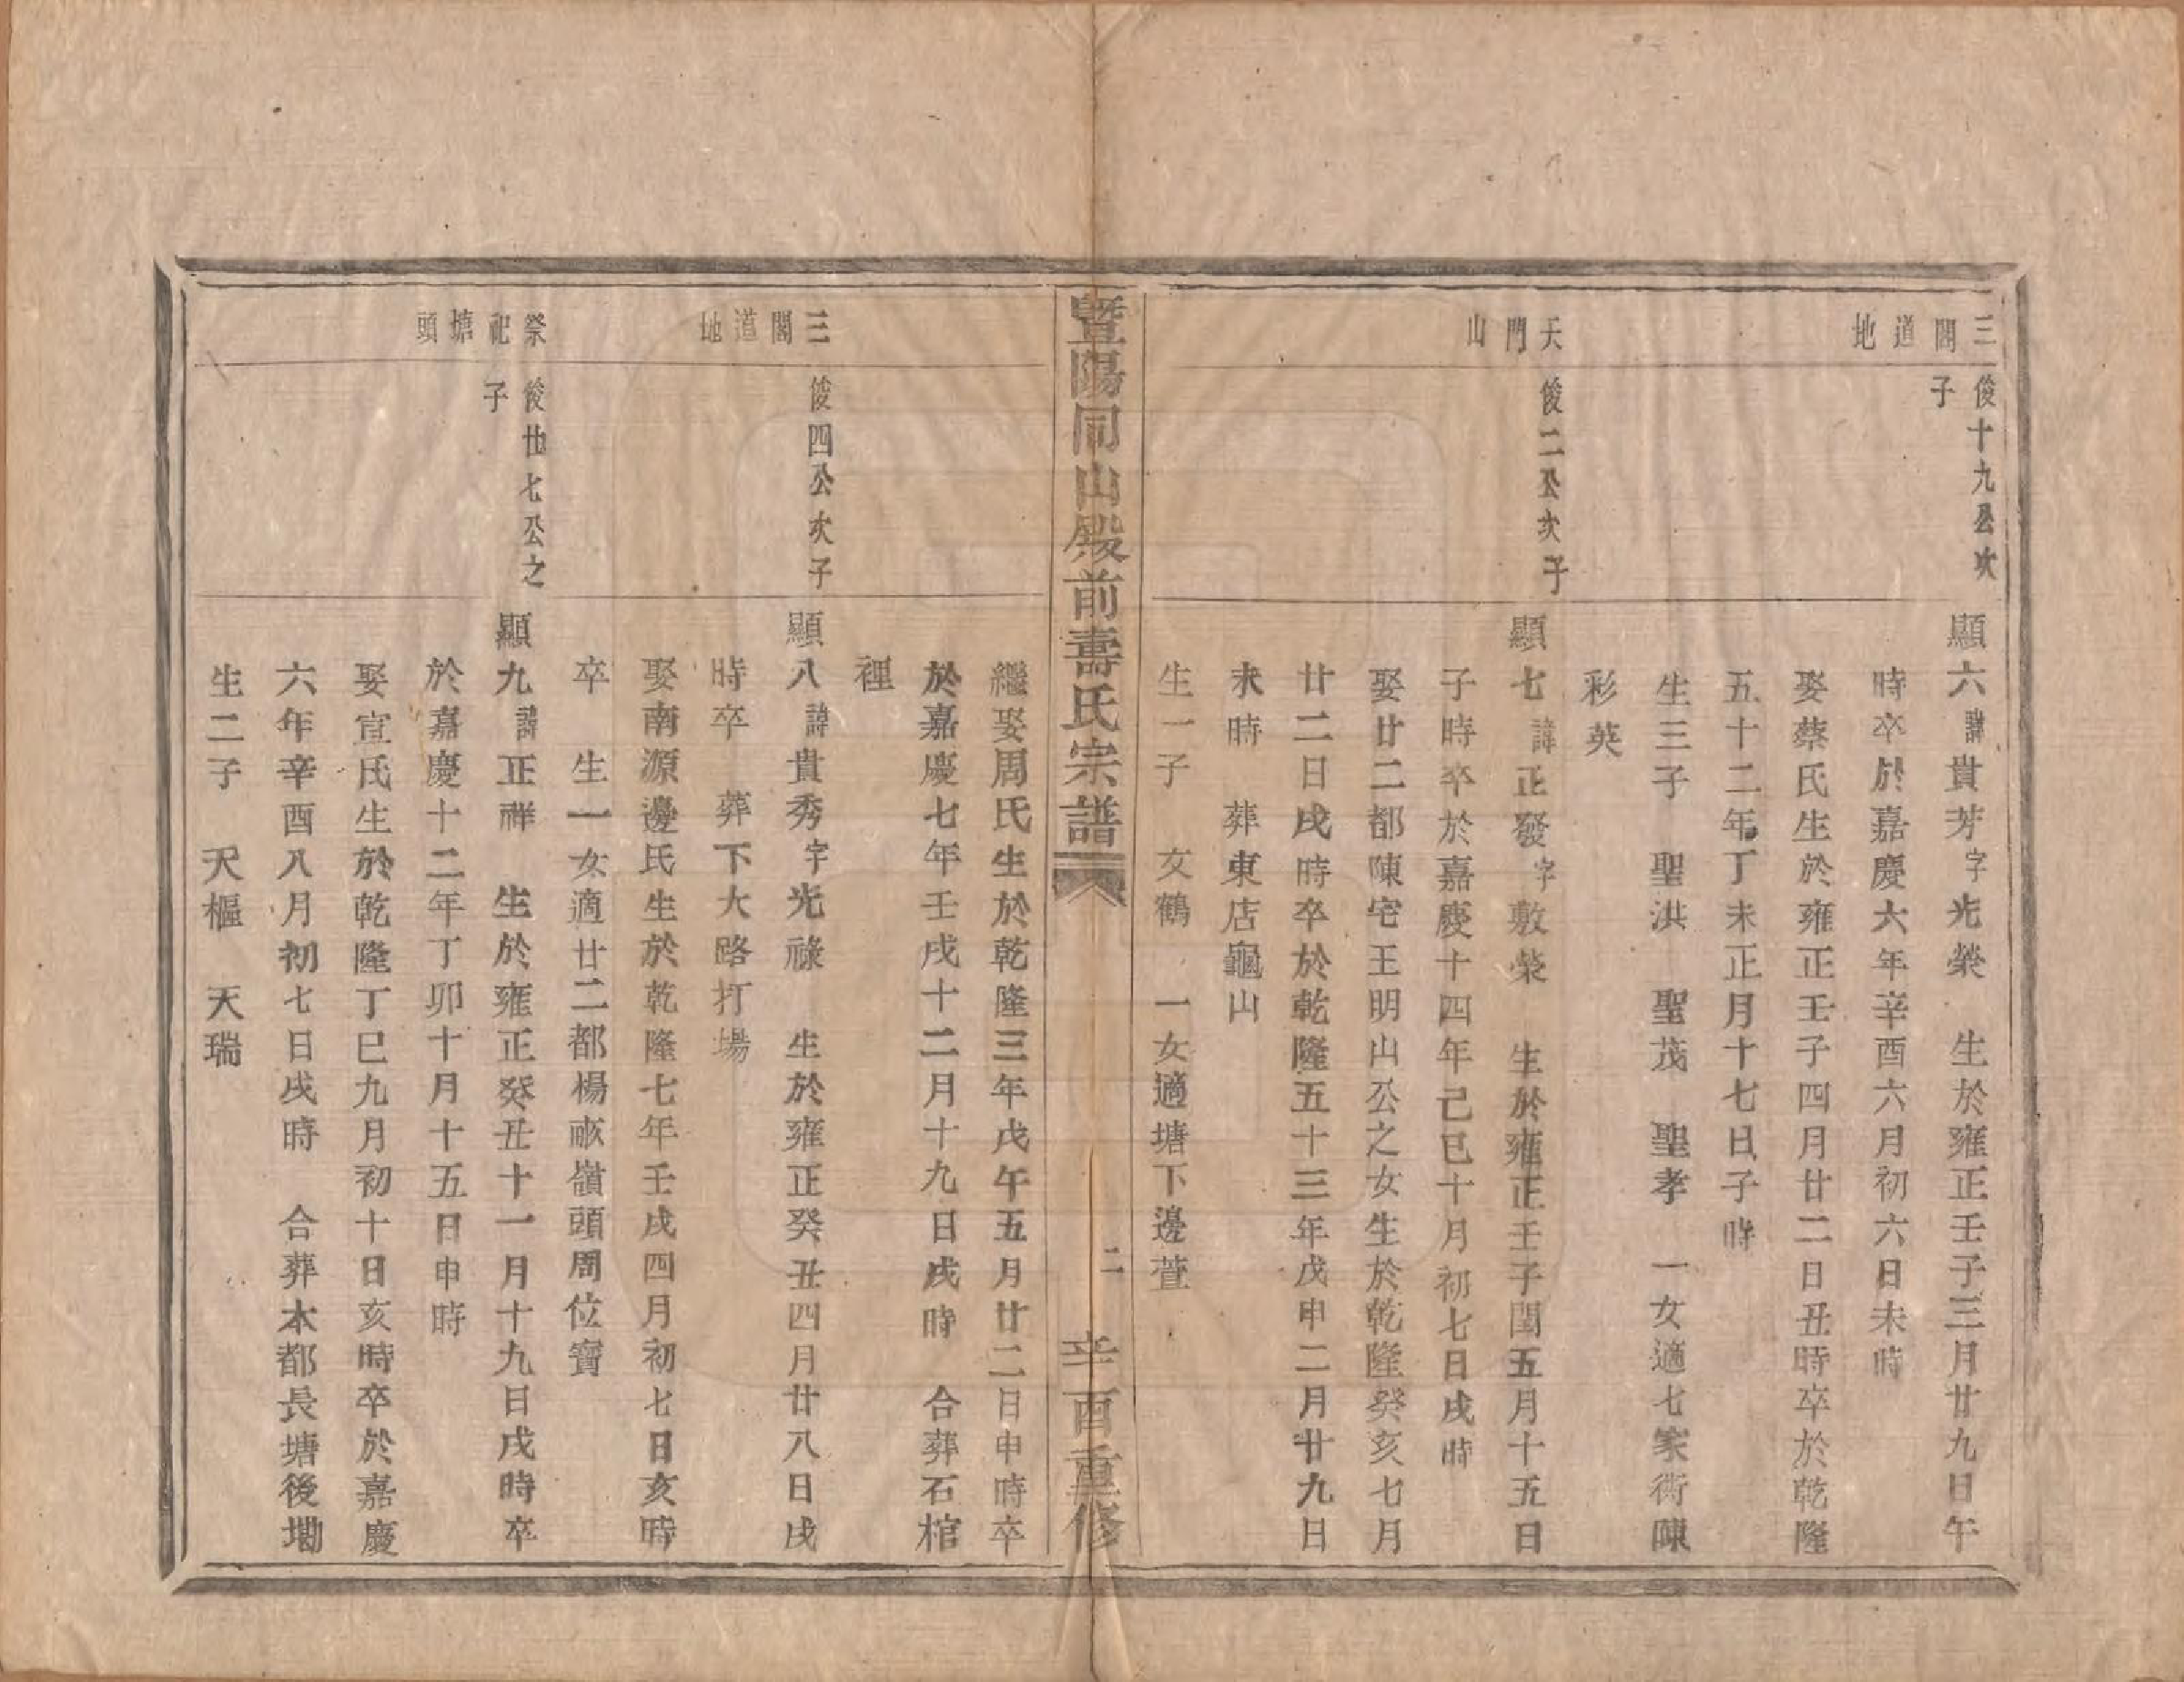 三閣道地
俊十九公次
子
顯六諱貴芳字光榮　生於雍正壬子三月廿九日午
時卒於嘉慶六年辛酉六月初六日未時
娶蔡氏生於雍正壬子四月廿二日丑時卒於乾隆
五十二年丁未正月十七日子時
生三子　聖洪　聖茂　聖孝　一女適七家衖陳
彩英
天門山
俊二公次子
顯七諱正發字敷榮　生於雍正壬子閏五月十五日
子時卒於嘉慶十四年己巳十月初七日戌時
娶廿二都陳宅王明山公之女生於乾隆癸亥七月
廿二日戌時卒於乾隆五十三年戊申二月廿九日
未時　葬東店龜山
生一子　女鶴　一女適塘下邊萱
暨陽同山殿前壽氏宗譜
二
辛酉重修
繼娶周氏生於乾隆三年戊午五月廿二日申時卒
於嘉慶七年壬戌十二月十九日戌時　合葬石棺
裡
三閣道地
俊四公次子
顯八諱貴秀字光祿　生於雍正癸丑四月廿八日戌
時卒　葬下大路打場
娶南源邊氏生於乾隆七年壬戌四月初七日亥時
卒　生一女適廿二都楊畈嶺頭周位寶
祭祀塘頭
俊廿七公之
子
顯九諱正祥　生於雍正癸丑十一月十九日戌時卒
於嘉慶十二年丁卯十月十五日申時
娶宣氏生於乾隆丁巳九月初十日亥時卒於嘉慶
六年辛酉八月初七日戌時　合葬本都長塘後墈
生二子　天樞　天瑞